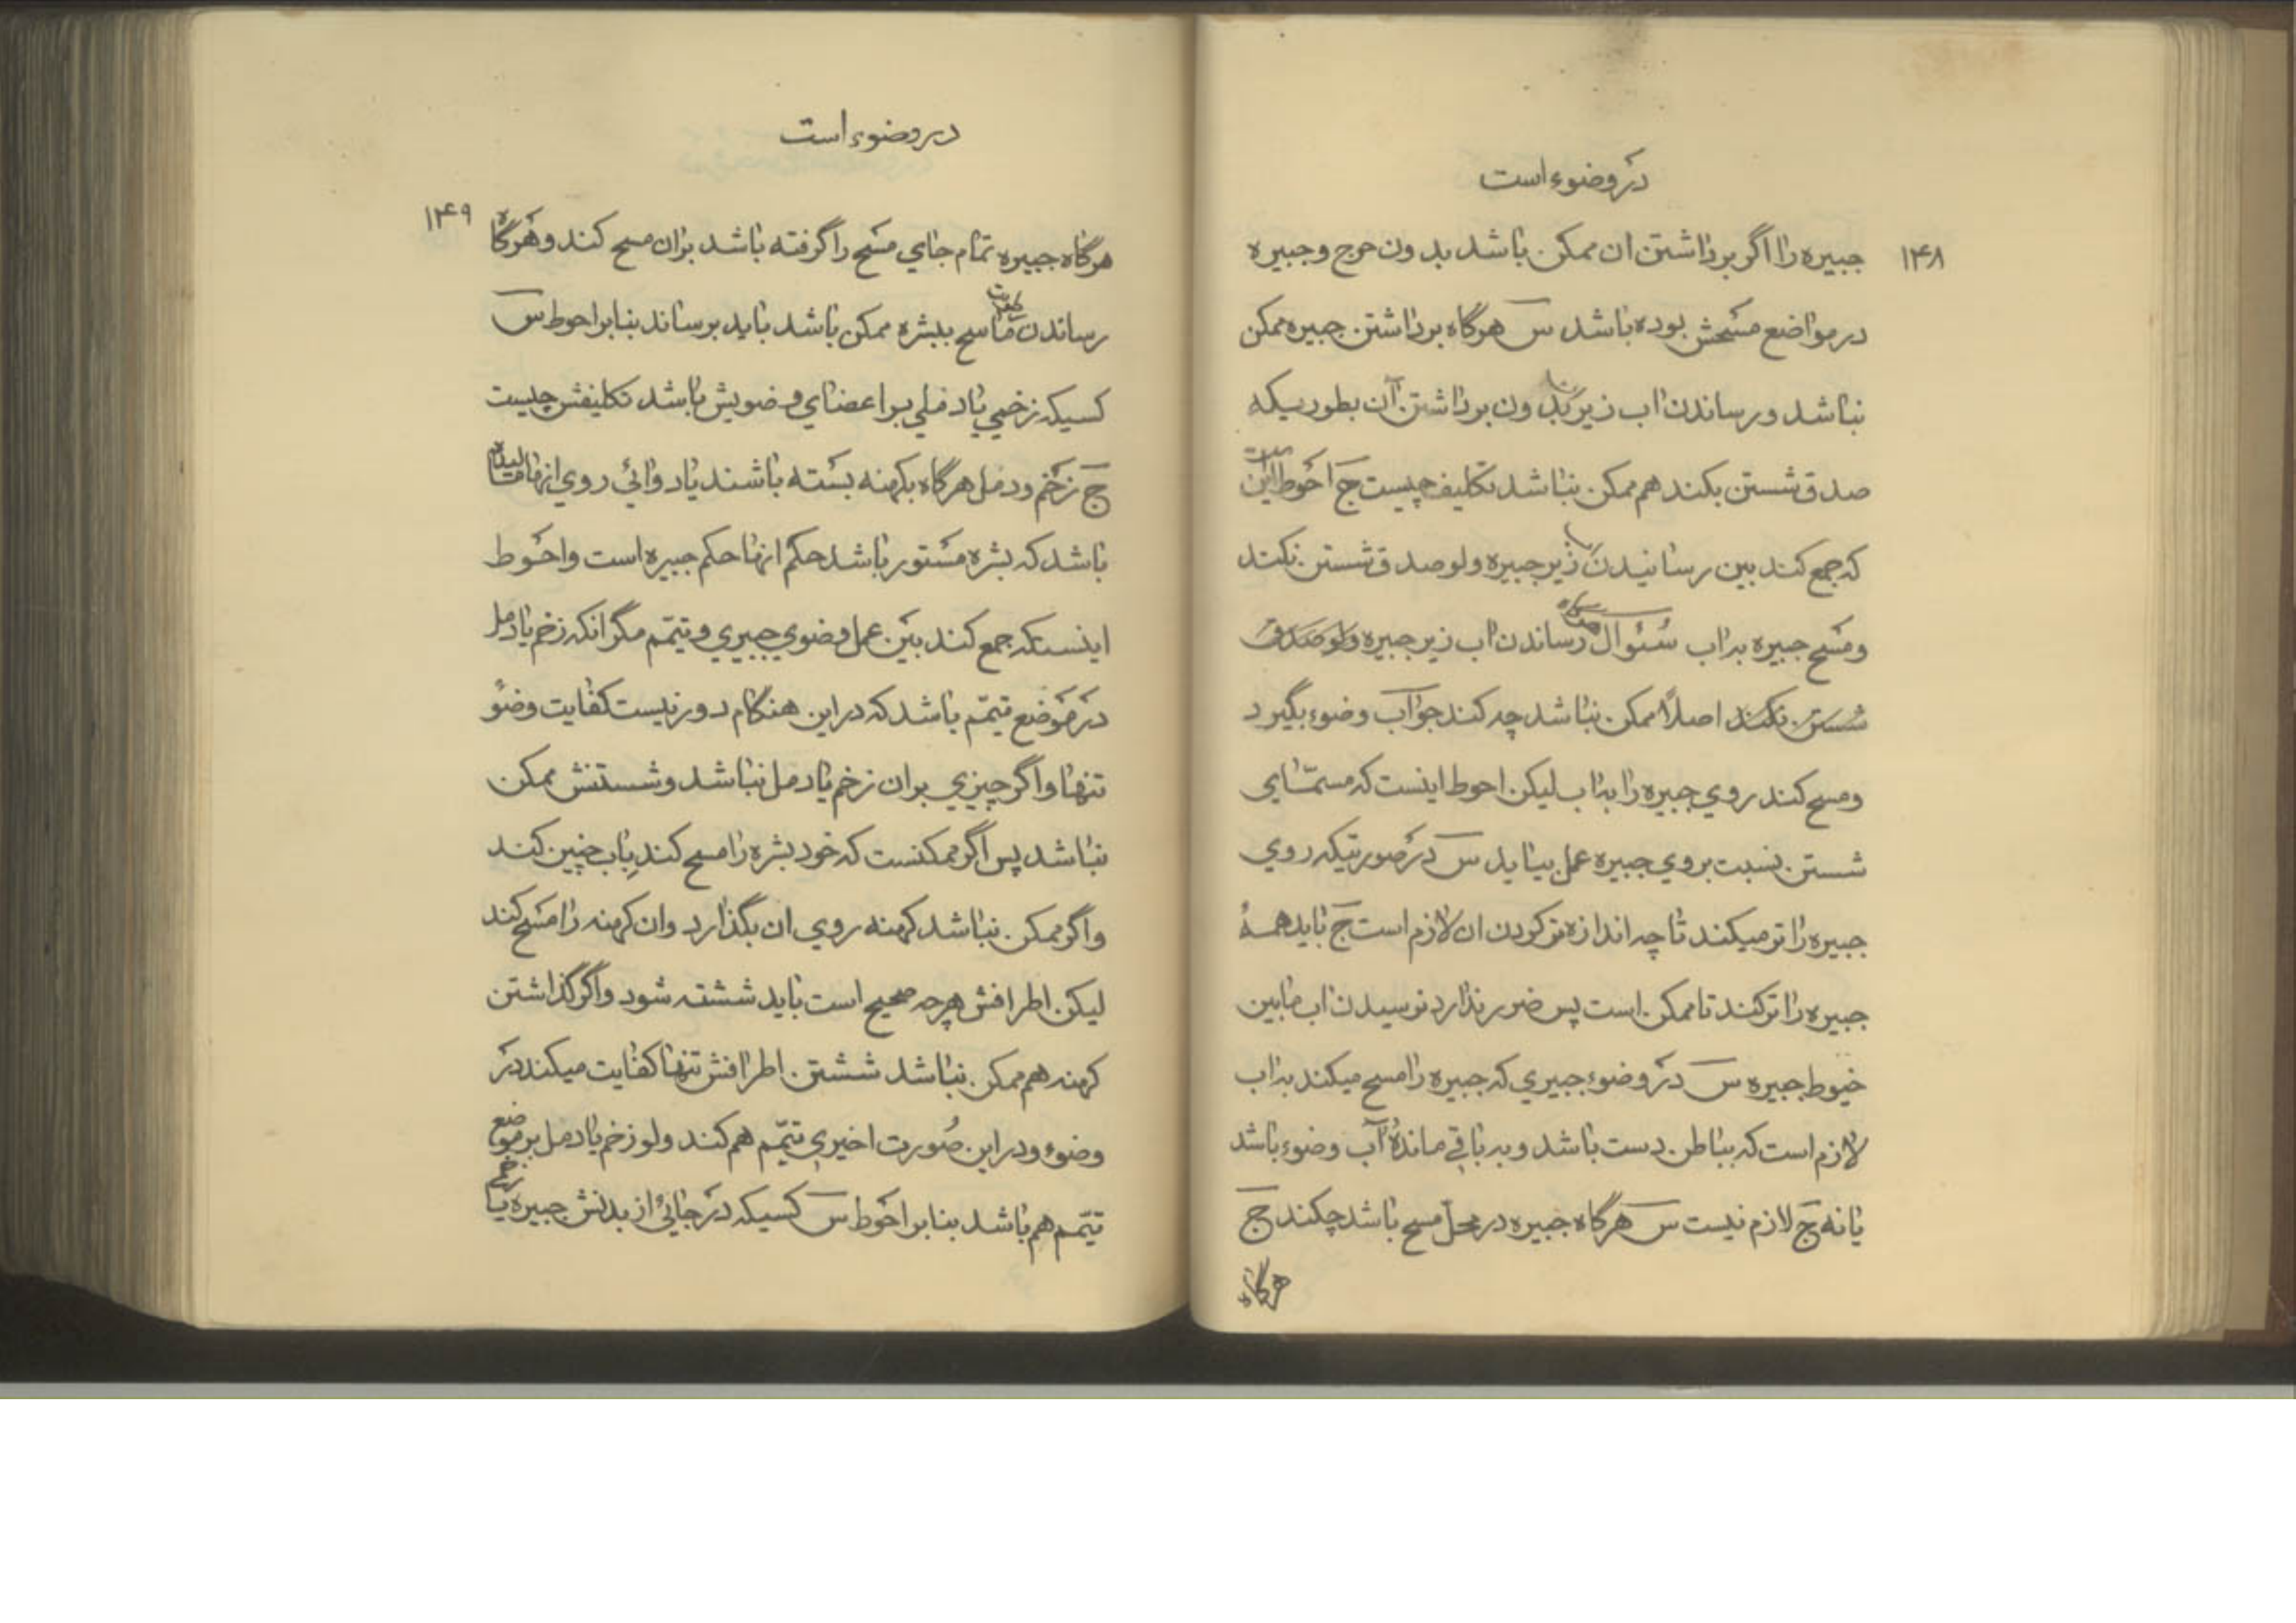 در وضوء است
۱۴۸
جبیره را اگر برداشتن ان ممکن باشد بدون حرج و جبیره
در مواضع مسحش بوده باشد س هرگاه برداشتن جبیره ممکن
نباشد و رساندن اب زیر بدون برداشتن آن بطوریکه
صدق شستن بکند هم ممکن نباشد تکلیف چیست ج احوط این
که جمع کند بین رسانیدن زیر جبیره ولو صدق شستن نکند
و مسح جبیره به اب سئوال رساندن اب زیر جبیره ولو صدق
شستن نکند اصلاً ممکن نباشد چه کند جواب وضوء بگیرد
و مسح کند روی جبیره را به اب لیکن احوط اینست که مسمّای
شستن نسبت بروی جبیره عمل بیاید س در صورتیکه روی
جبیره را تر میکند تا چه اندازه تر کردن ان لازم است ج باید همهٔ
جبیره را تر کند تا ممکن است پس ضرر ندارد نرسیدن اب مابین
خیوط جبیره س در وضوء جبیری که جبیره را مسح میکند به اب
لازم است که بباطن دست باشد و به باقی ماندهٔ آب وضوء باشد
یا نه ج لازم نیست س هرگاه جبیره در محلّ مسح باشد چکند ج
هرگاه
در وضوء است
۱۴۹
هرگاه جبیره تمام جای مسح را گرفته باشد بران مسح کند و هرگاه
رساندن ماسح ببشره ممکن باشد باید برساند بنابر احوط س
کسیکه زخمی یا دملی بر اعضای وضویش باشد تکلیفش چیست
ج زخم و دمل هرگاه بکهنه بسته باشند یا دوائی روی انها مالیده
باشد که بشره مستور باشد حکم انها حکم جبیره است و احوط
اینستکه جمع کند بین عمل وضوی جبیری و تیمّم مگر انکه زخم یا دمل
در موضع تیمّم باشد که در این هنگام دور نیست کفایت وضو
تنها و اگر چیزی بران زخم یا دمل نباشد و شستنش ممکن
نباشد پس اگر ممکنست که خود بشره را مسح کند باب چنین کند
و اگر ممکن نباشد کهنه روی ان بگذارد و ان کهنه را مسح کند
لیکن اطرافش هرچه صحیح است باید ششته شود و اگر گذاشتن
کهنه هم ممکن نباشد ششتن اطرافش تنها کفایت میکند در
وضوء و در این صورت اخیری تیمّم هم کند ولو زخم یا دمل بر موضع
تیمّم هم باشد بنابر احوط س کسیکه در جائی از بدنش جبیره یا زخم